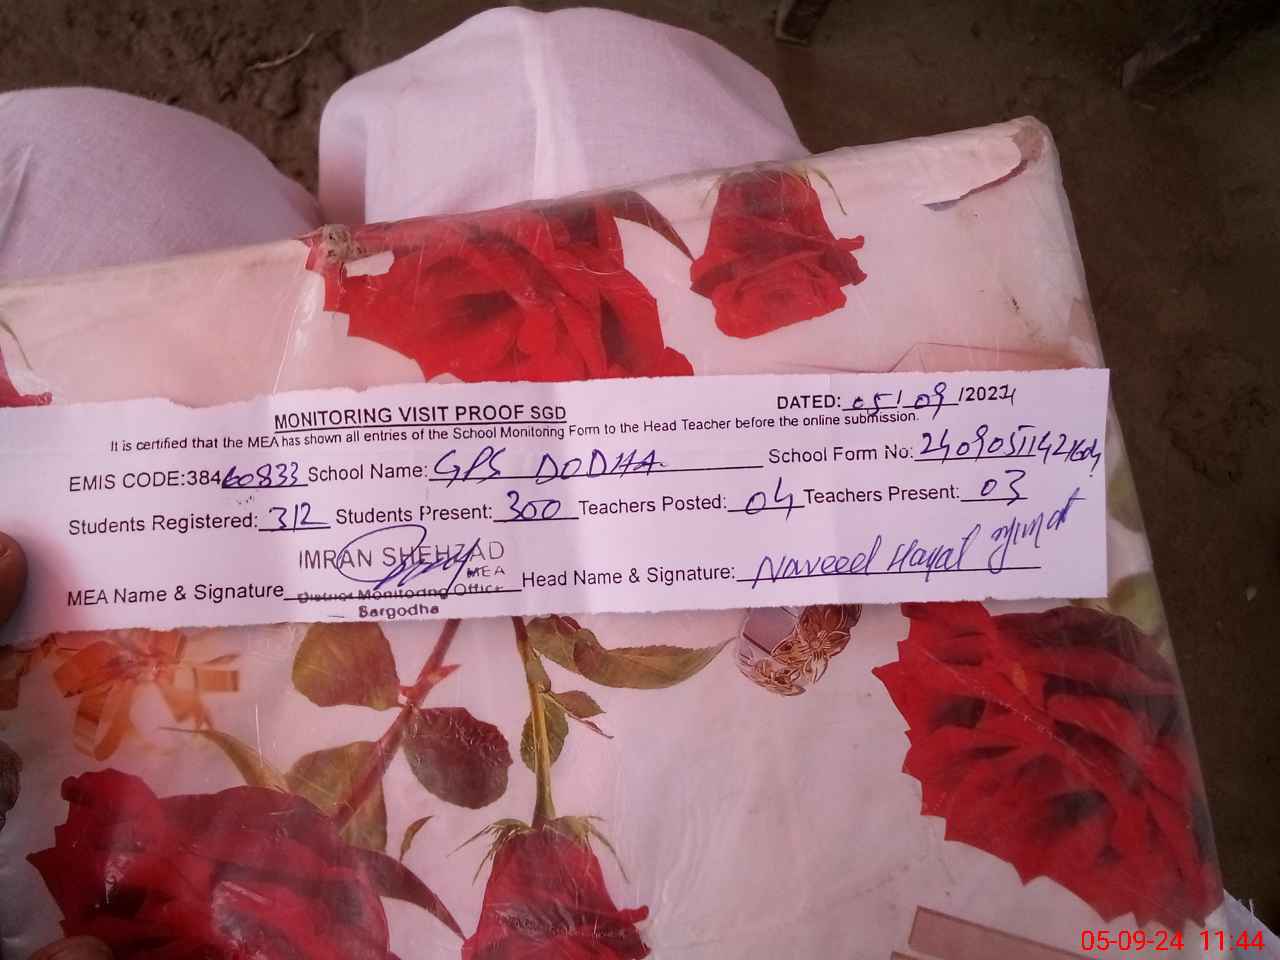 MONITORING VISIT PROOF SGD
DATED: 05/09/2024
It is certified that the MEA has shown all entries of the School Monitoring Form to the Head Teacher before the online submission.
EMIS CODE:38460833 School Name: GPS DODHA School Form No:
Students Registered: 312 Students Present: 300 Teachers Posted: 04 Teachers Present: 03
IMRAN SHEHZAD
MEA
MEA Name & Signature District Monitoring Office Head Name & Signature: Naveed Hayat
Sargodha
05-09-24 11:44